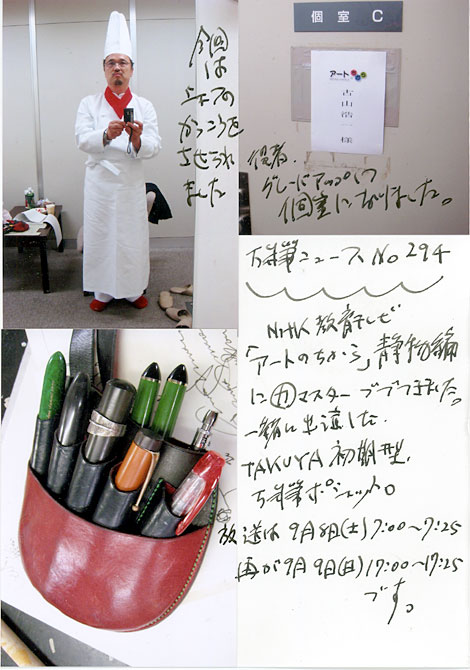 今回は
シェフの
かっこうを
させられ
ました
個室 C
アート
古山浩一様
役者
グレードアップして
個室になりました。
万年筆ニュース No 294
NHK教育テレビ
「アートのちから」静物編
に㋕マスター
一緒に出演した
TAKUYA 初期型
万年筆ポシェット。
放送は 9月8日(土)17:00〜17:25
再が9月9日(日)17:00〜17:25
です。